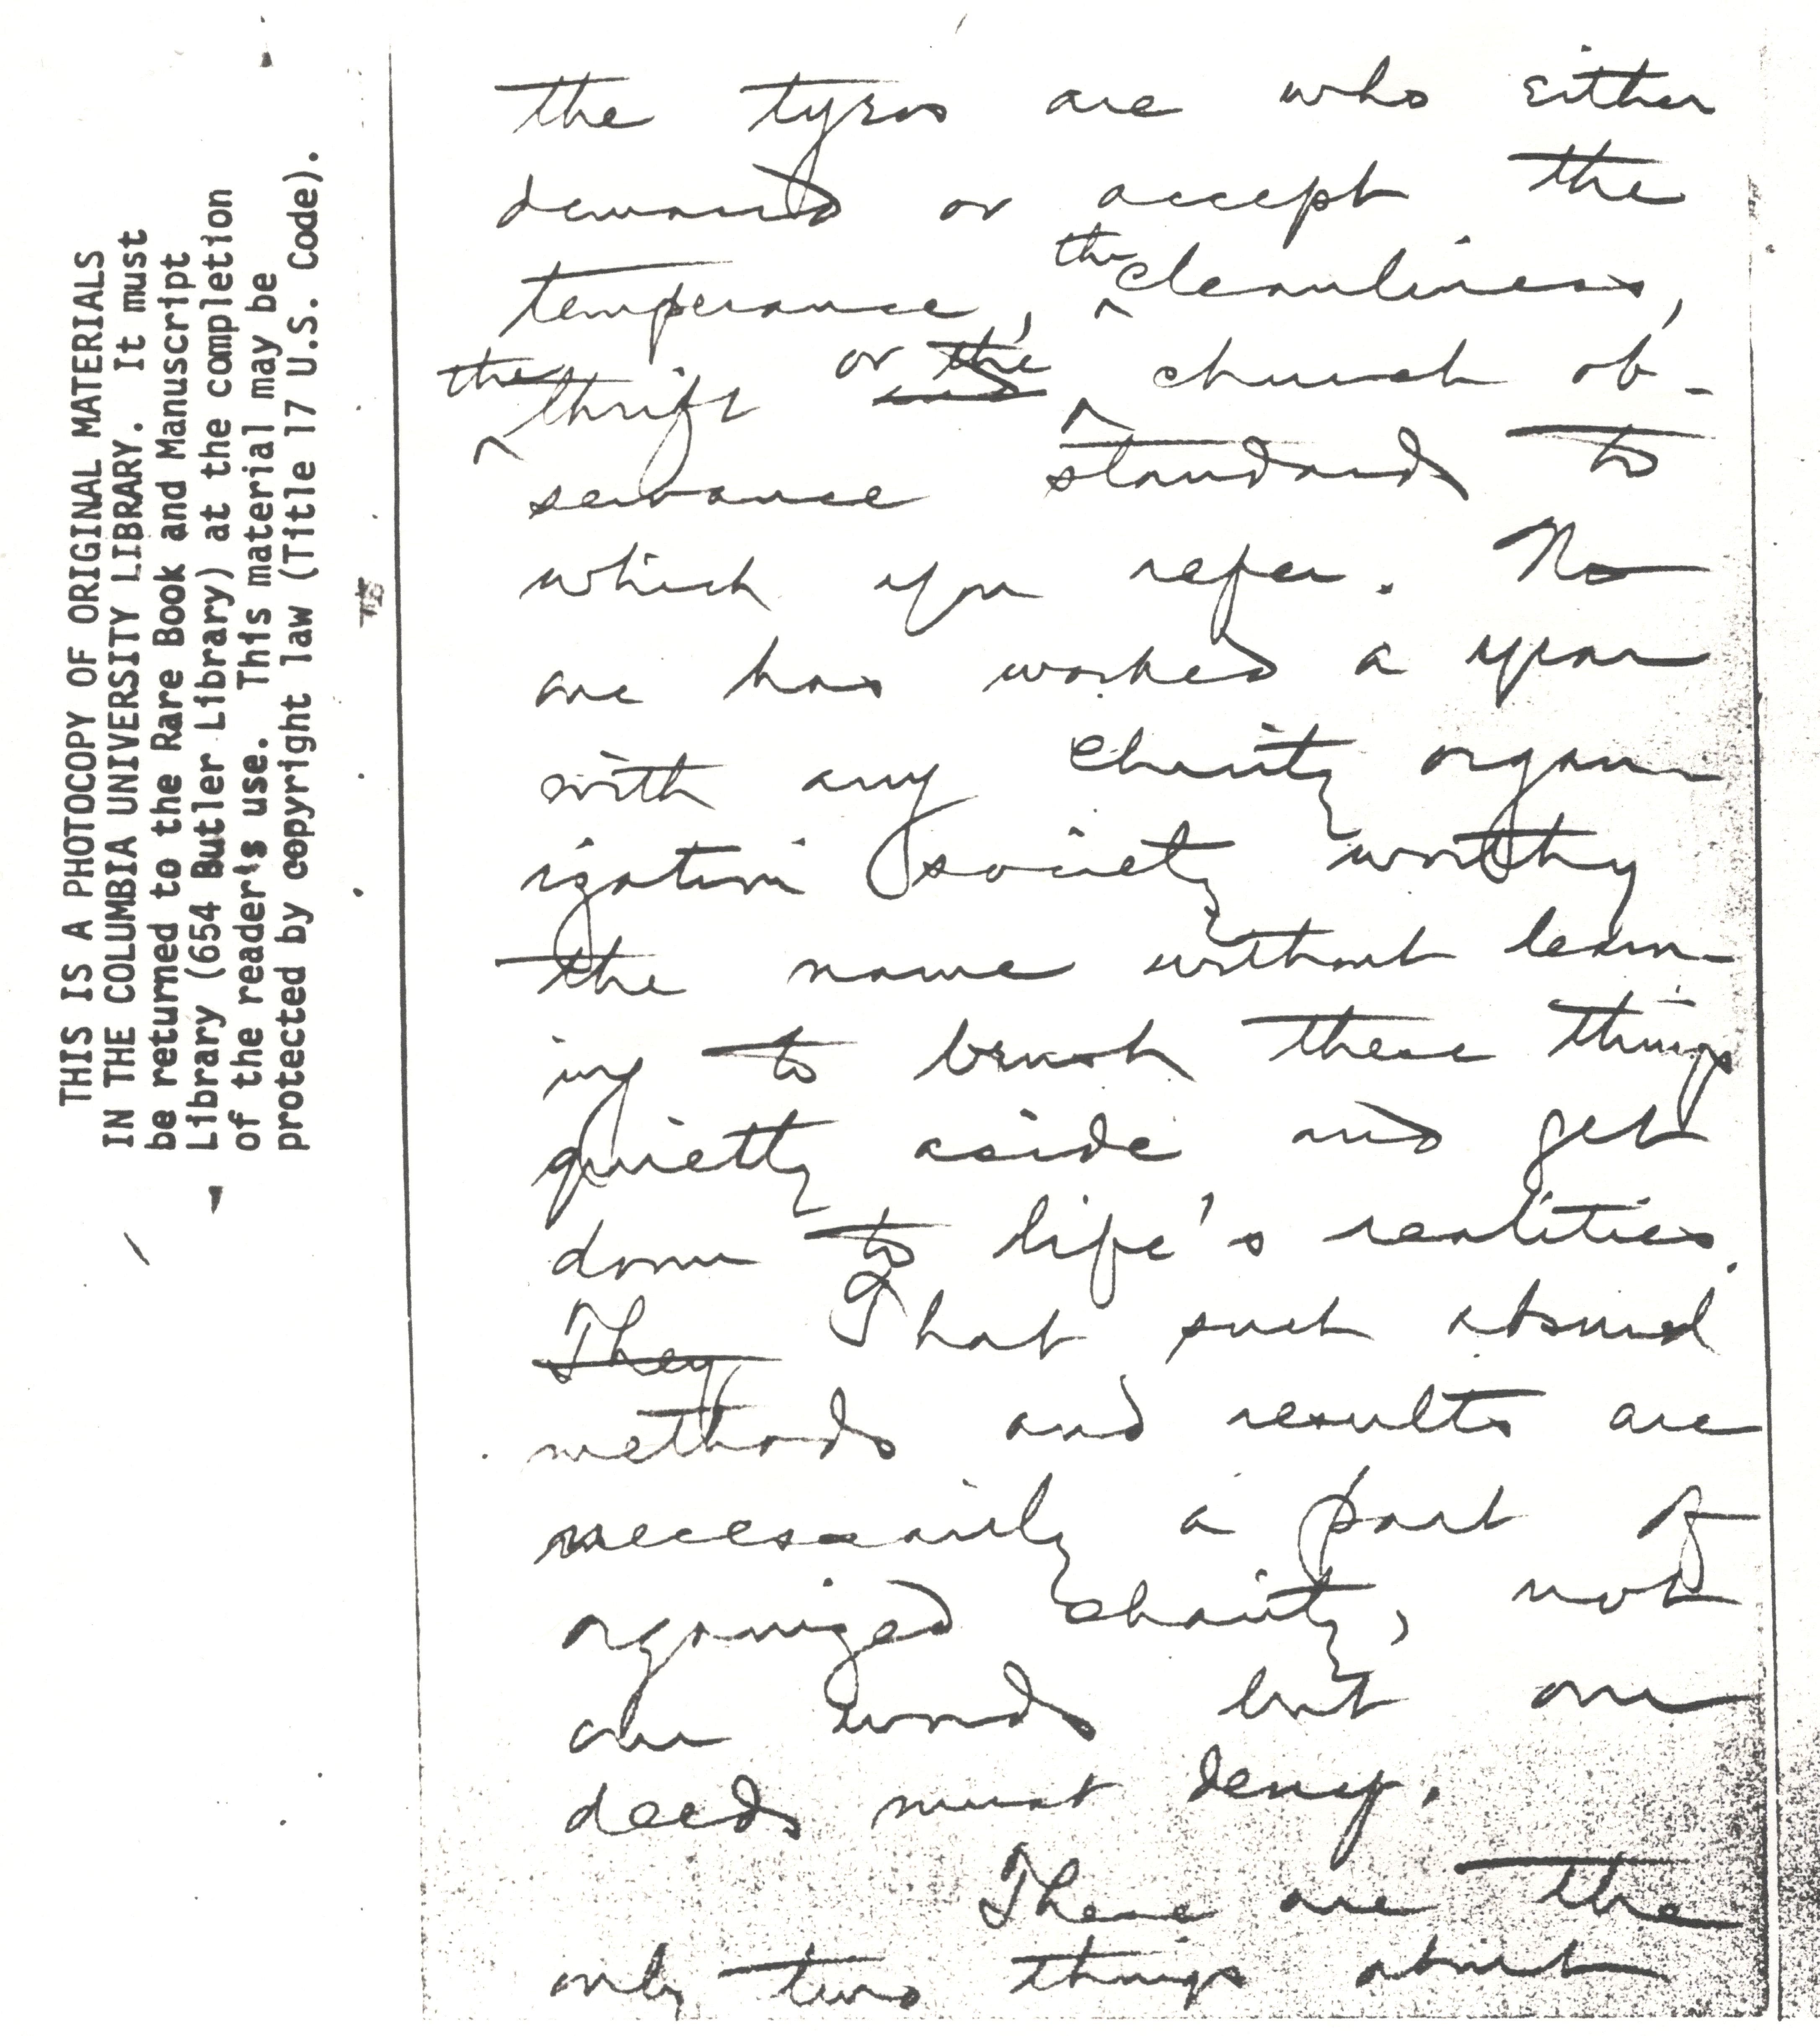 THIS IS A PHOTOCOPY OF ORIGINAL MATERIALS
IN THE COLUMBIA UNIVERSITY LIBRARY. It must
be returned to the Rare Book and Manuscript
Library (654 Butler Library) at the completion
of the reader's use. This material may be
protected by copyright law (Title 17 U.S. Code).
the tyros are who either
demand or accept the
temperance, the cleanliness,
the thrift and or the church ob-
servance standard to
which you refer. No
one has worked a year
with any charity organ-
ization society worthy
the name without learn-
ing to brush these things
quietly aside and get
down to life's realities.
They That such absurd
methods and results are
necessarily a part of
organized charity, not
our words but our
deeds must deny.
These are the
only two things about